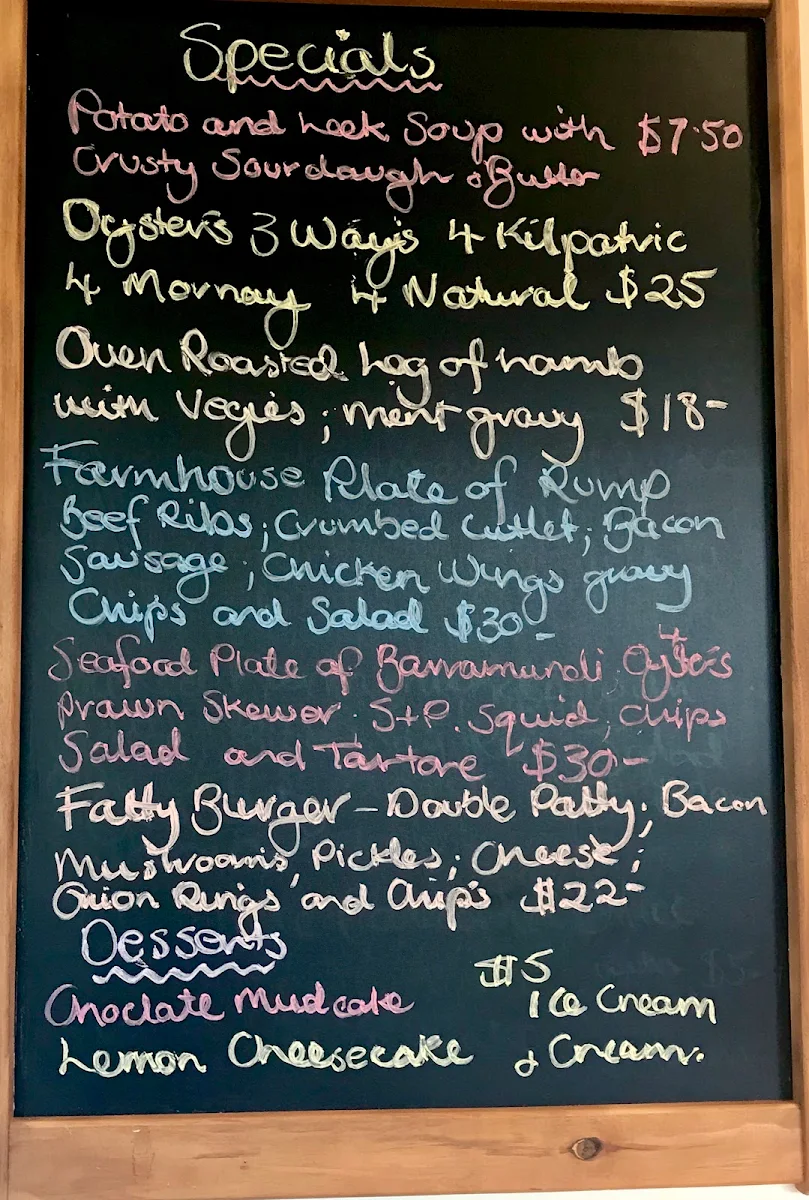 Specials
Potato and Leek Soup with $7.50
Crusty Sourdaugh & Butter
Oysters 3 Ways 4 Kilpatric
4 Mornay 4 Natural $25
Oven Roasted Leg of Lamb
with Vegies; ment gravy $18-
Farmhouse Plate of Rump
Beef Ribs; Crumbed Cutlet; Bacon
Sausage; Chicken Wings gravy
Chips and Salad $30-
Seafood Plate of Barramundi, 4 Oysters
Prawn Skewer. S+P. Squid, Chips
Salad and Tartare $30-
Fatty Burger - Double Patty; Bacon
Mushrooms, Pickles; Cheese;
Onion Rings and Chips $22-
Desserts
$5
Choclate Mudcake Ice Cream
Lemon Cheesecake & Cream.